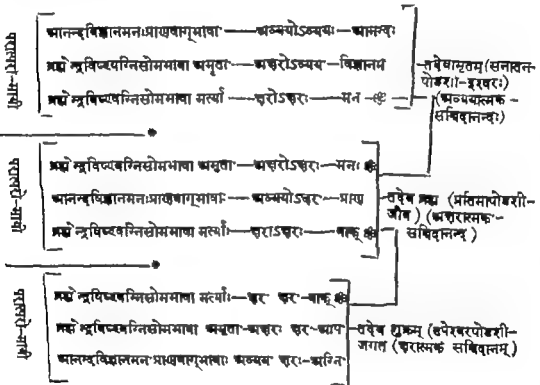 परात्परो-मायी
आनन्दविज्ञानमनःप्राणवाग्भावा——अव्ययोऽव्ययः—आनन्दः
ब्रह्मेन्द्रविष्ण्वग्निसोमभावा अमृता——अक्षरोऽव्यय—विज्ञानम
ब्रह्मेन्द्रविष्ण्वग्निसोमभावा मर्त्या——क्षरोऽक्षरः——मन
—तदेवामृतम् (सनातन-
षोडशी-इश्वरः)
(अव्ययात्मक-
सच्चिदानन्दः)
परात्परो-मायी
ब्रह्मेन्द्रविष्ण्वग्निसोमभावा अमृता——अक्षरोऽक्षरः——मनः
आनन्दविज्ञानमनःप्राणवाग्भावाः——अव्ययोऽक्षर——प्राण
ब्रह्मेन्द्रविष्ण्वग्निसोमभावा मर्त्याः——क्षराऽक्षरः——वाक्
—तदेव ब्रह्म (प्रतिमाषोडशी-
जीव) (अक्षरात्मक-
सच्चिदानन्द)
परात्परो-मायी
ब्रह्मेन्द्रविष्ण्वग्निसोमभावा मर्त्याः——क्षर क्षर—वाक्
ब्रह्मेन्द्रविष्ण्वग्निसोमभावा अमृता—अक्षरः क्षर—आप
आनन्दविज्ञानमन प्राणवाग्भावाः अव्यय क्षरः—अग्नि
—तदेव शुक्रम् (तपेश्वरषोडशी-
जगत (क्षरात्मक सच्चिदानम्)